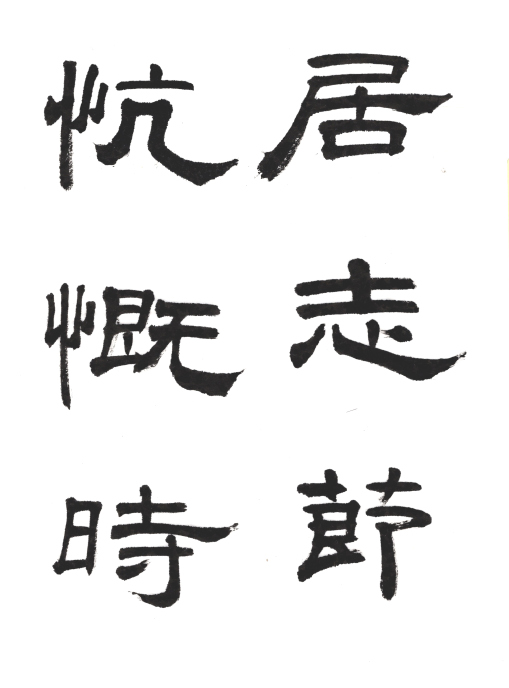 居志節
忼慨時